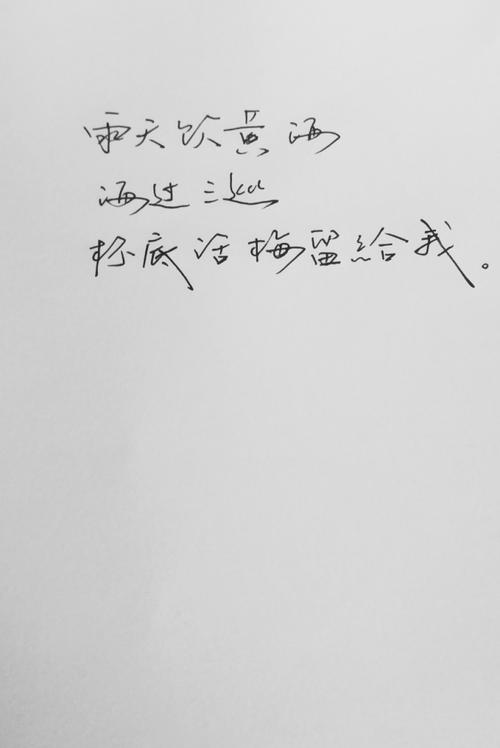 雨天饮黄酒
酒过三巡
杯底话梅留給我。